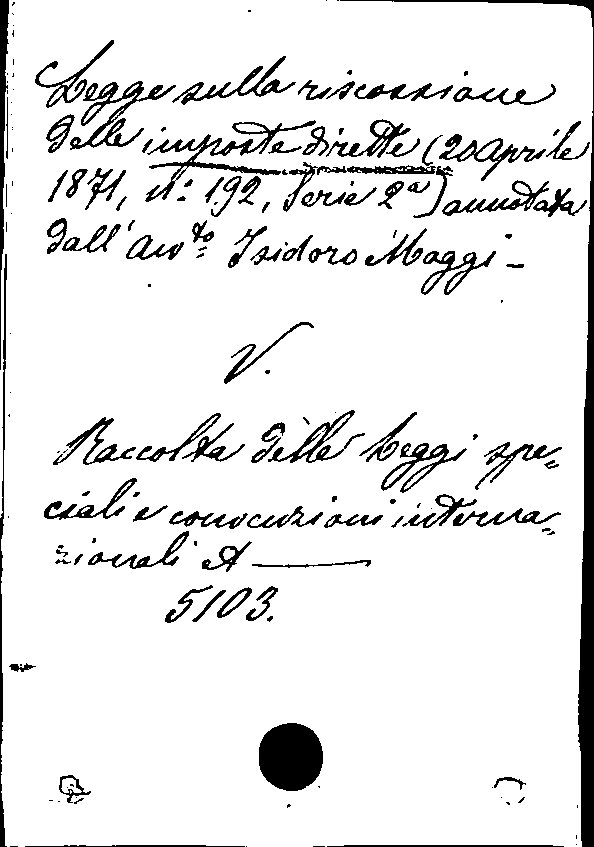 Legge sulla riscossione
delle imposte dirette (20 Aprile
1871, n.º 192, Serie 2ª) annotata
dall' Avv.to Isidoro Maggi -
V.
Raccolta delle Leggi spe-
ciali e convenzioni interna-
zionali A ———
5103.